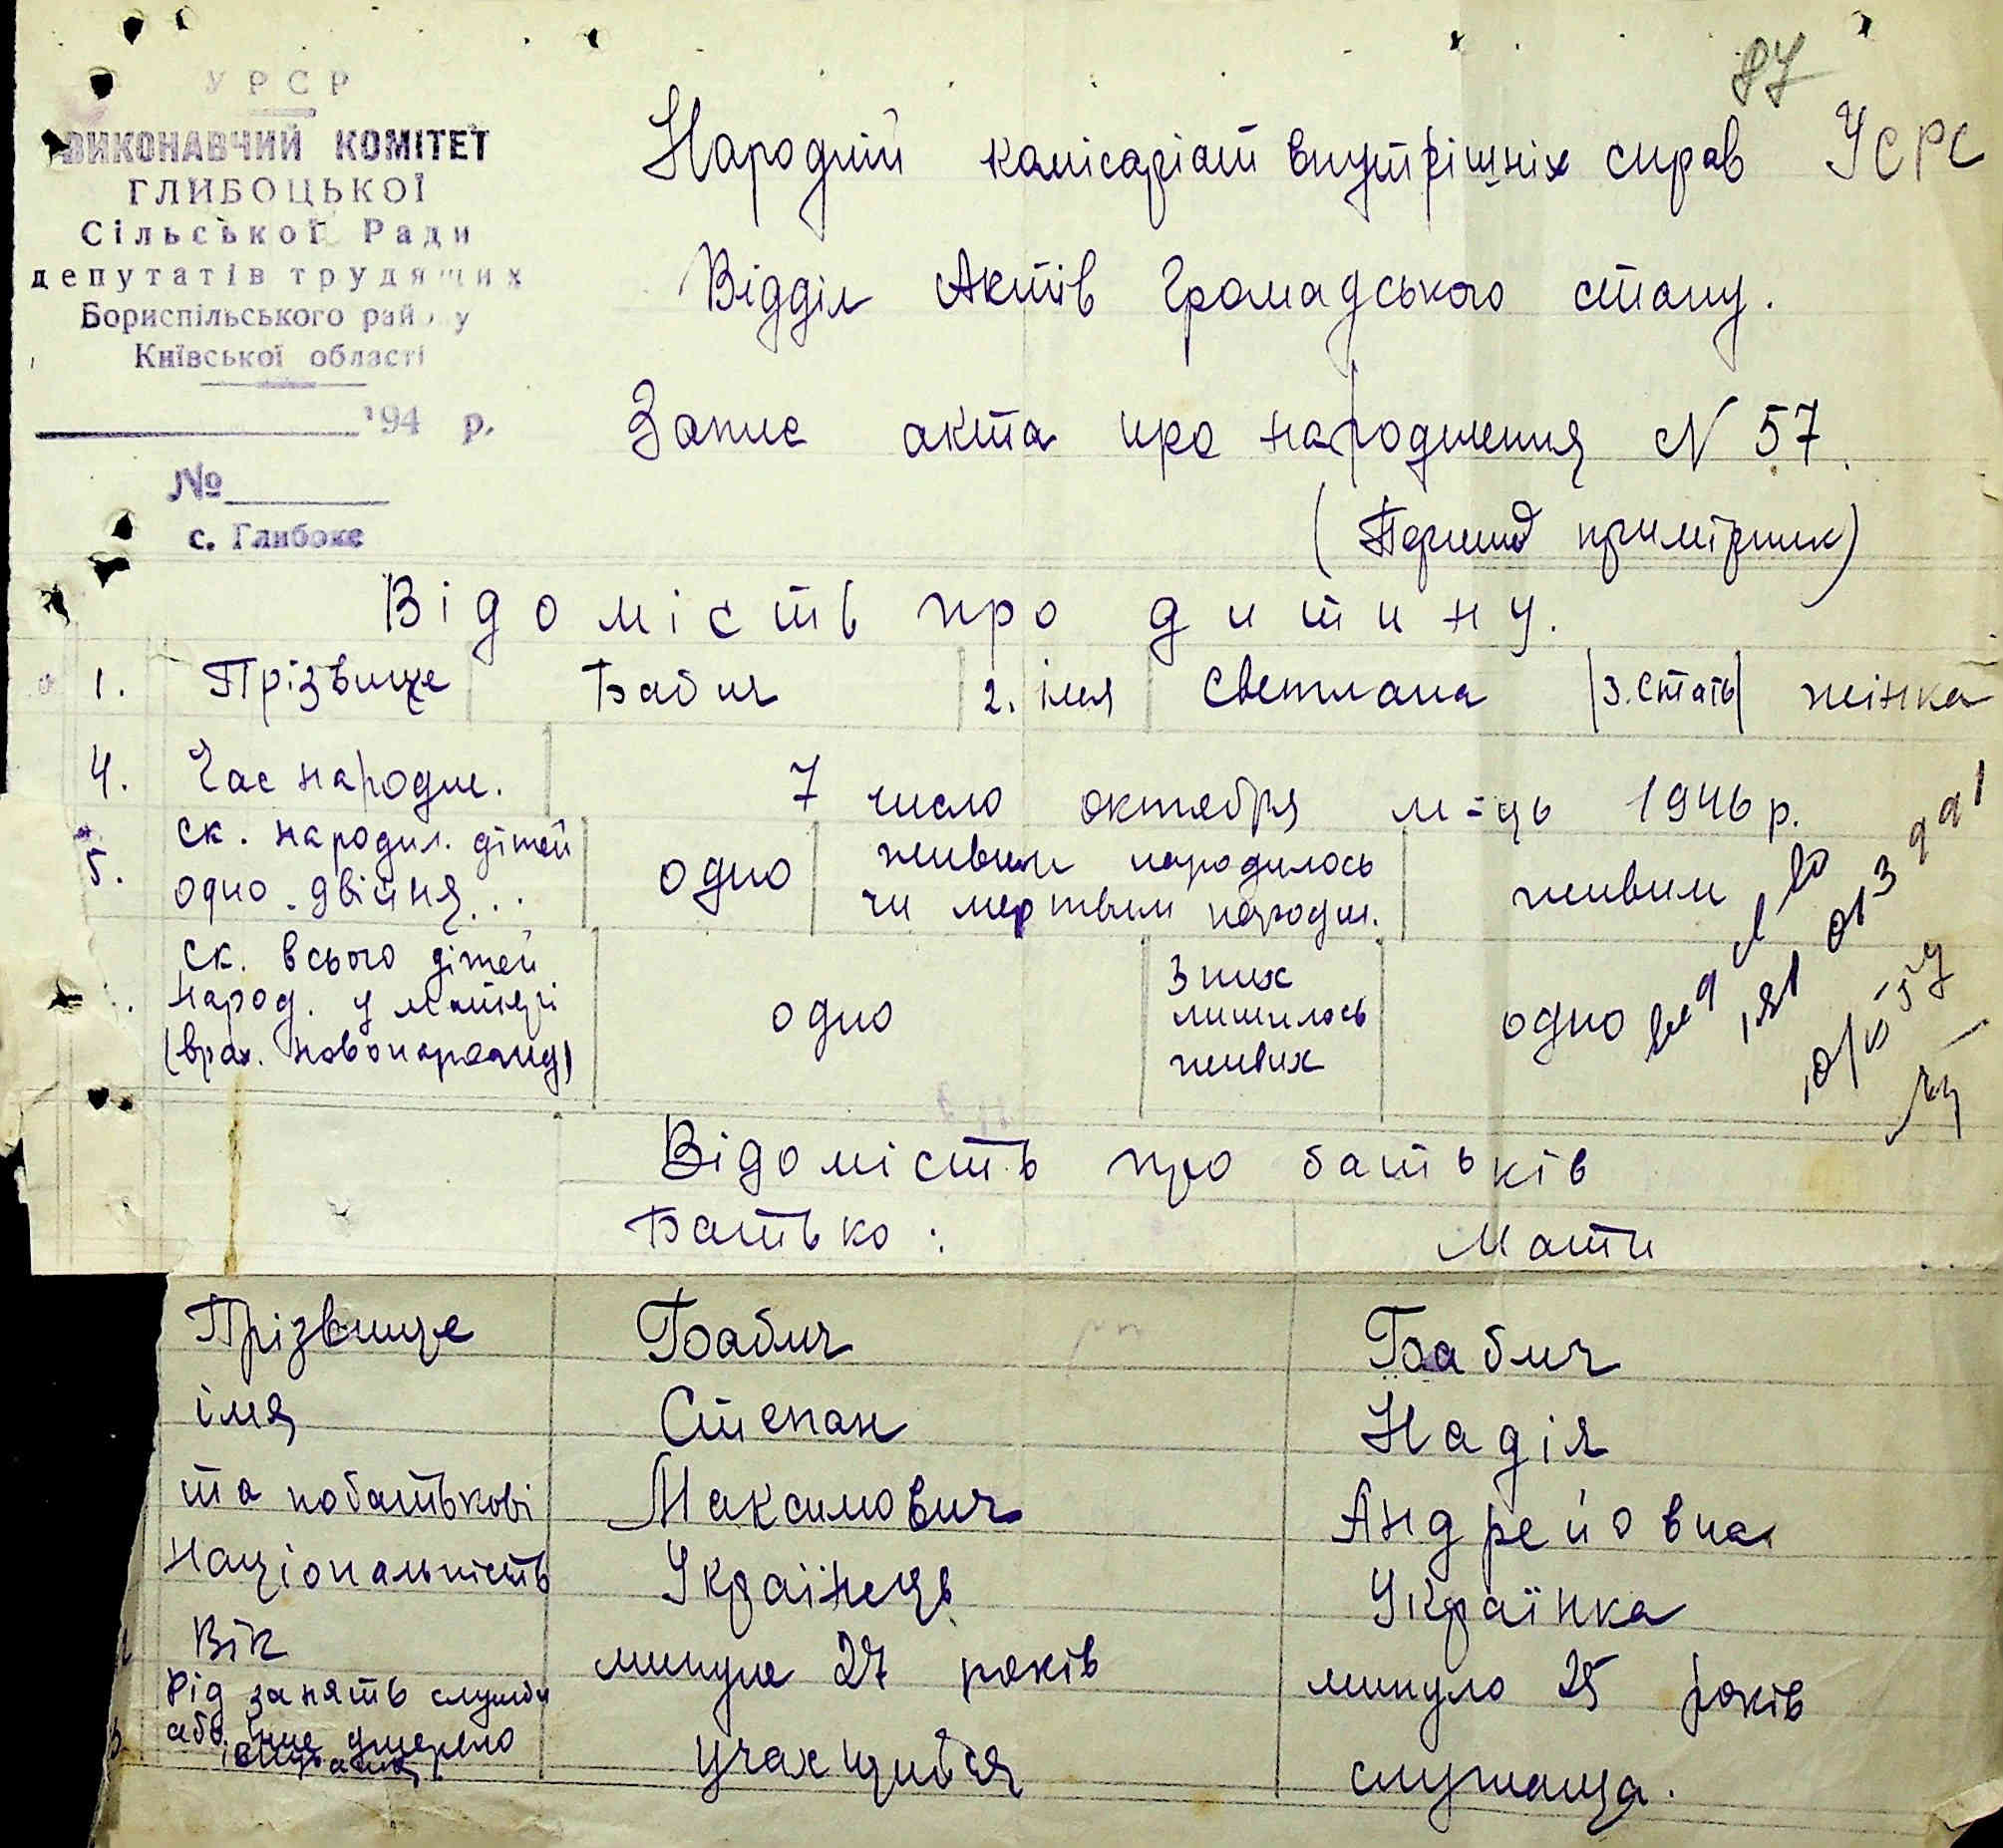 87
УРСР
ВИКОНАВЧИЙ КОМІТЕТ
ГЛИБОЦЬКОЇ
Сільської Ради
депутатів трудящих
Бориспільського району
Київської області
194 р.
№
с. Глибоке
Народній комісаріат внутрішніх справ УСРС
Відділ Актів Громадського стану.
Запис акта про народження N 57.
(Перший примірник)
Відомість про дитину.
1. Прізвище Бабич 2. імя Светлана 3. стать жінка
4. Час народж. 7 число октября м-ць 1946 р.
5. ск. народил. дітей одно. двійня... одно живим народилось чи мертвим народж. живим
ск. всього дітей народ. у матері (врах. новонарожд) одно З них лишилось живих одно
Відомість про батьків
Батько: Мати
Прізвище Бабич Бабич
імя Степан Надія
та побатькові Максимович Андрейовна
Національність Українець Українка
Вік минуло 27 років минуло 25 років
Рід занять служби або інше джерело існування учахщийся служаща.